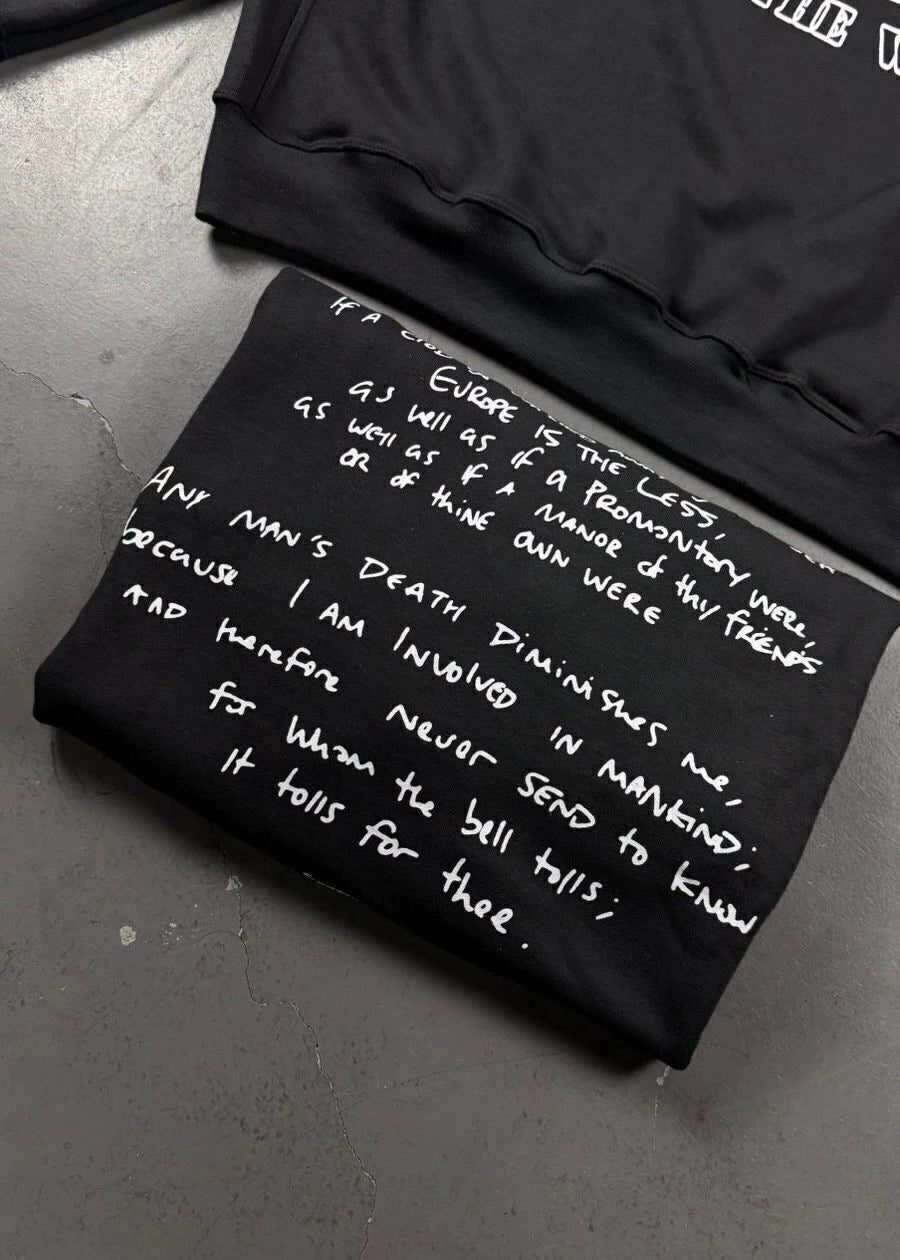 THE W
If A clod
EUROPE IS THE LESS,
as well as if a PROMONTORY WERE,
as well as if A MANOR of thy friends
OR of thiNE OWN WERE
ANY MAN'S DEATH DiMiNiSHES me,
because I AM INVOLVED IN MANKIND;
AND therefore Never SEND to KNOW
for Whom the bell tolls;
It tolls for thee.